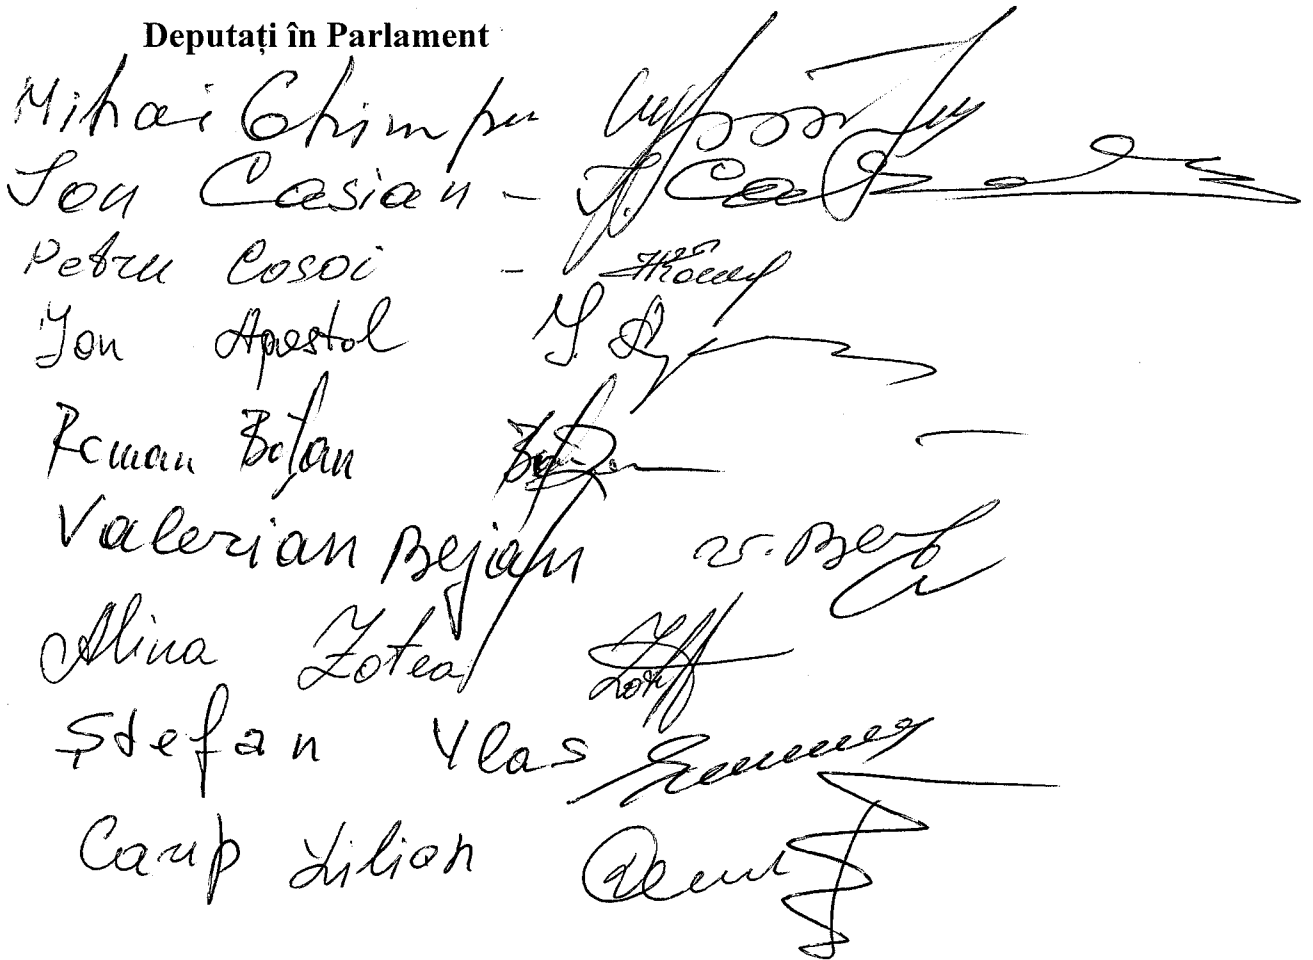 Deputați în Parlament
Mihai Ghimpu
Ion Casian - I. Ca
Petru Cosoi -
Ion Apostol I. Ap
Roman Boțan
Valerian Bejan V. Bej
Alina Zotea
Ștefan Vlas
Carp Lilian